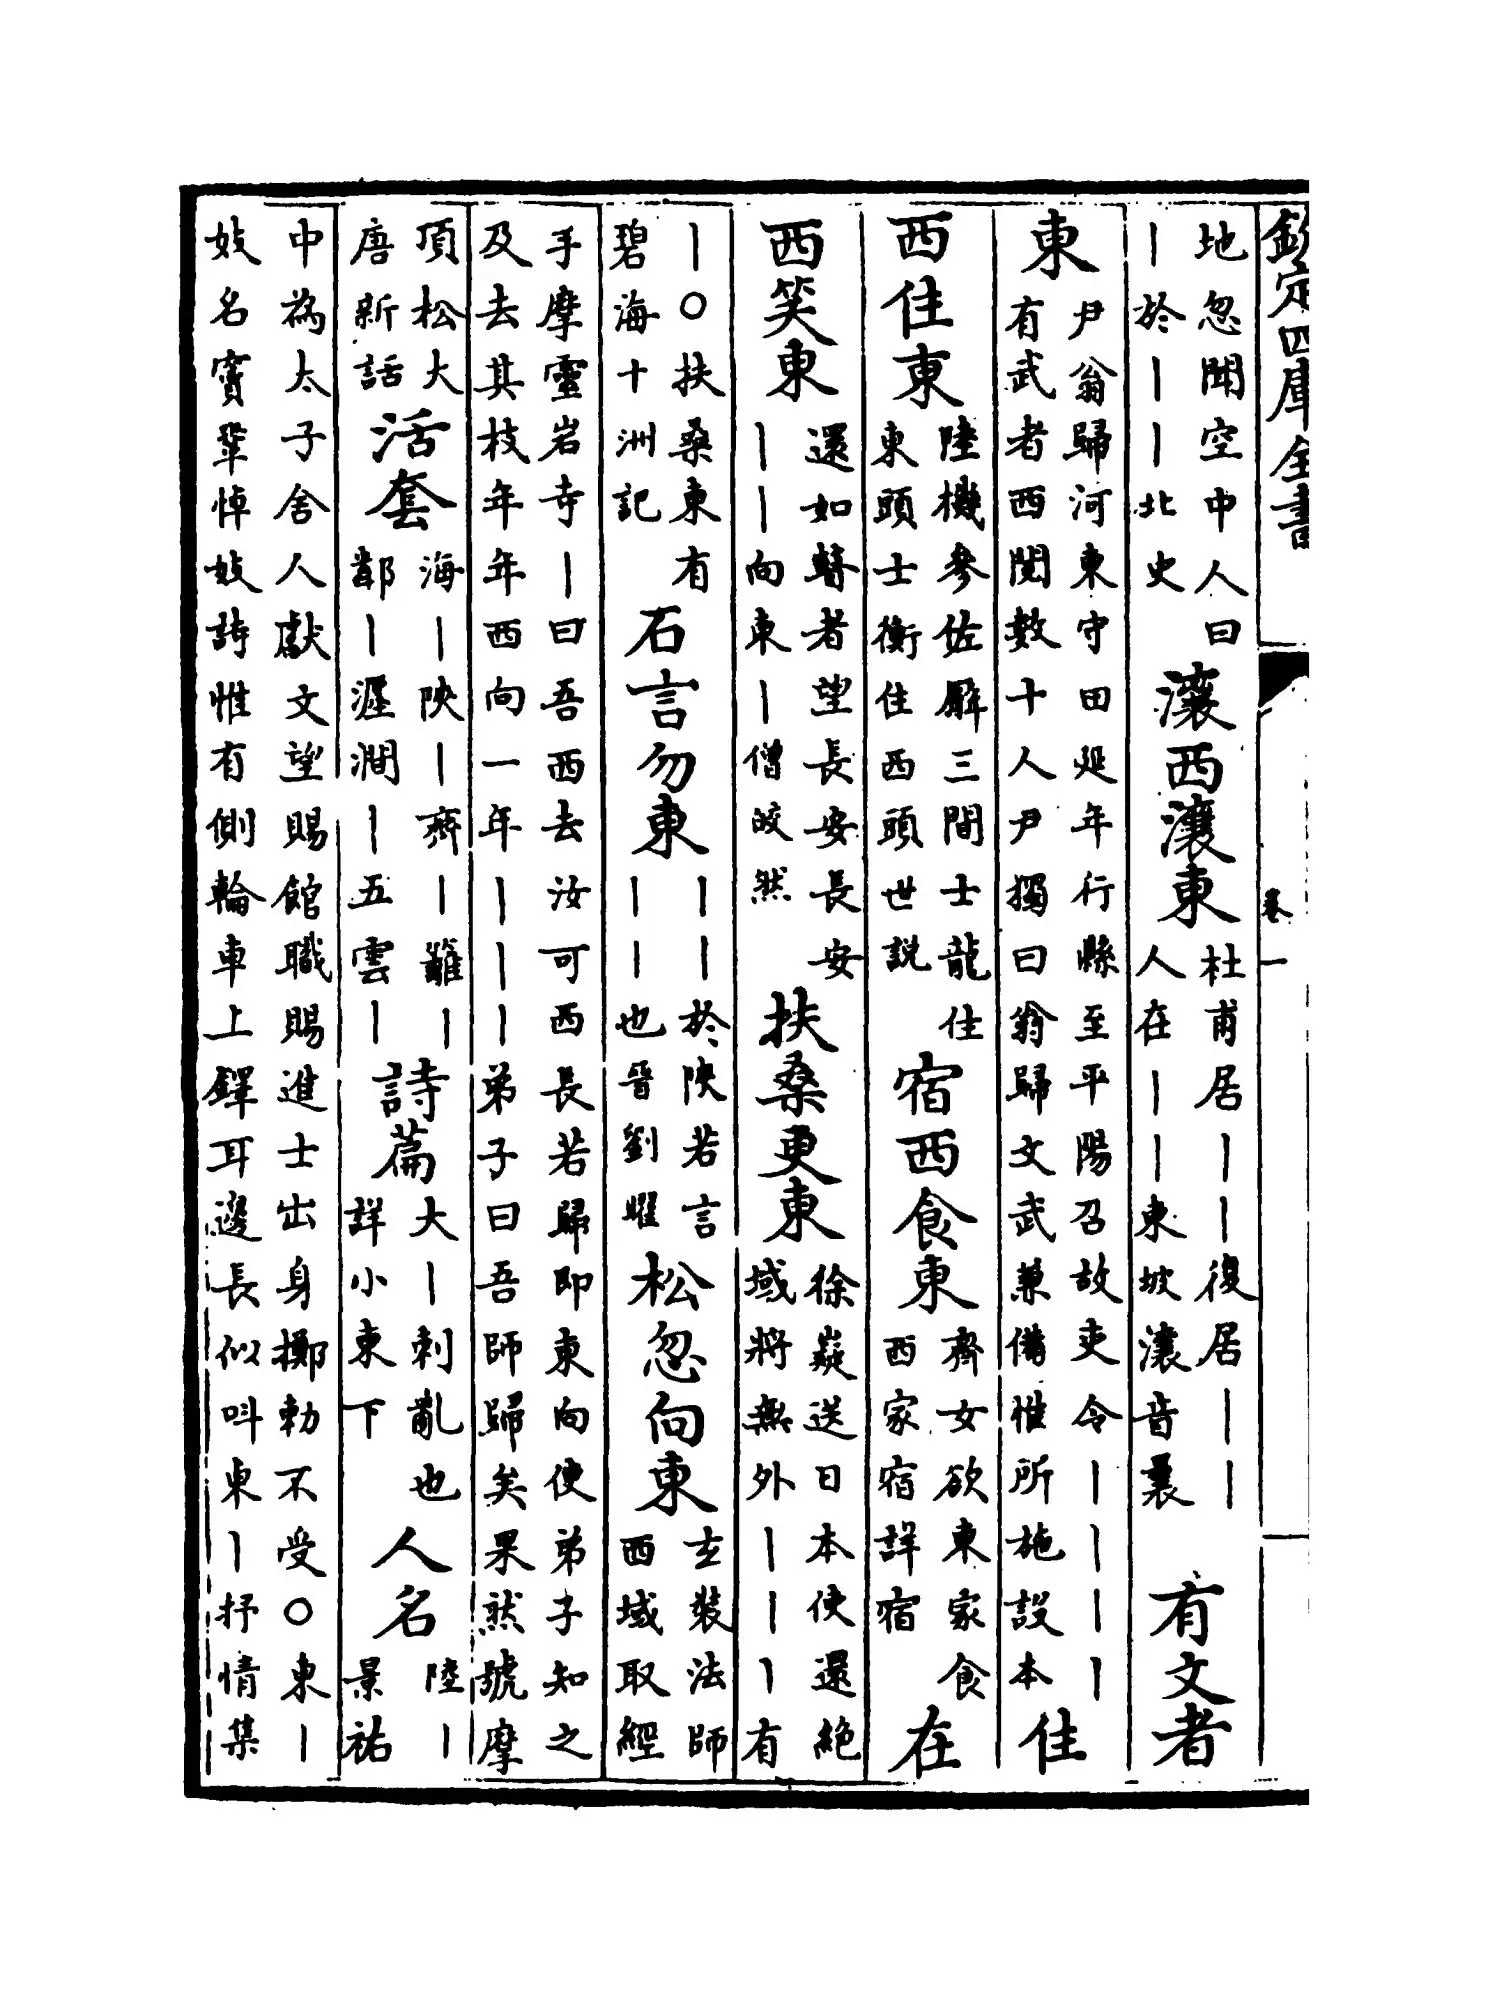 欽定四庫全書
卷一
地忽聞空中人曰
丨於丨丨北史
瀼西瀼東
杜甫居丨丨復居丨丨
人在丨丨東坡瀼音曩
有文者
東
尹翁歸河東守田延年行縣至平陽召故吏令丨丨丨丨
有武者西閱數十人尹獨曰翁歸文武兼備惟所施設本
住
西住東
陸機參佐廨三間士龍住
東頭士衡住西頭世説
宿西食東
齊女欲東家食
西家宿詳宿
在
西笑東
還如瞽者望長安長安
丨丨向東丨僧皎然
扶桑更東
徐嶷送日本使還絕
域將無外丨丨丨有
丨〇扶桑東有
碧海十洲記
石言勿東
丨丨於陝若言
丨丨也晉劉曜
松忽向東
玄裝法師
西域取經
手摩靈岩寺丨曰吾西去汝可西長若歸即東向使弟子知之
及去其枝年年西向一年丨丨丨弟子曰吾師歸矣果然號摩
項松大
唐新話
活套
海丨陝丨齊丨籬丨
鄰丨瀍澗丨五雲丨
詩篇
大丨刺亂也
詳小東下
人名
陸丨
景祐
中為太子舍人獻文望賜館職賜進士出身擲勅不受〇東丨
妓名竇鞏悼妓詩惟有側輪車上鐸耳邊長似呌東丨抒情集